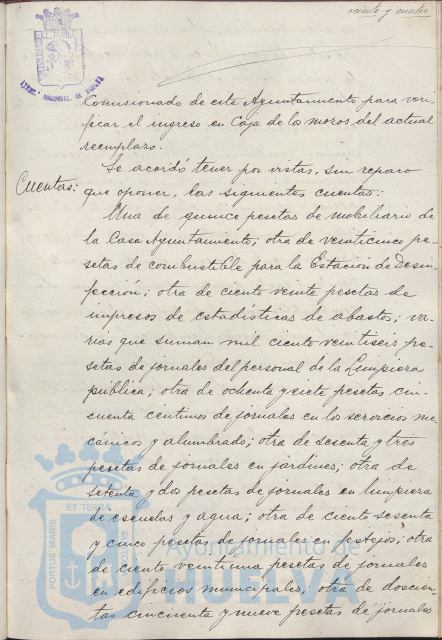 veinte y cuatro
PORTUS MARIS
ET TERRÆ
AYTMO. MUNICIPAL DE HUELVA
Comisionado de este Ayuntamiento para veri-
ficar el ingreso en Caja de los mozos del actual
reemplazo.
Se acordó tener por vistas, sin reparo
Cuentas:
que oponer, las siguientes cuentas:
Una de quince pesetas de mobiliario de
la Casa Ayuntamiento; otra de veinticinco pe-
setas de combustible para la Estación de Desin-
fección; otra de ciento veinte pesetas de
impresos de estadísticas de abastos; va-
rias que suman mil ciento veintiseis pe-
setas de jornales del personal de la Limpieza
pública; otra de ochenta y siete pesetas cin-
cuenta centimos de jornales en los servicios me-
cánicos y alumbrado; otra de sesenta y tres
pesetas de jornales en jardines; otra de
setenta y dos pesetas de jornales en limpieza
de escuelas y agua; otra de ciento sesenta
y cinco pesetas de jornales en festejos; otra
de ciento veintiuna pesetas de jornales
en edificios municipales; otra de doscien-
tas cincuenta y nueve pesetas de jornales
PORTUS MARIS
ET TERRÆ
Ayuntamiento de
HUELVA